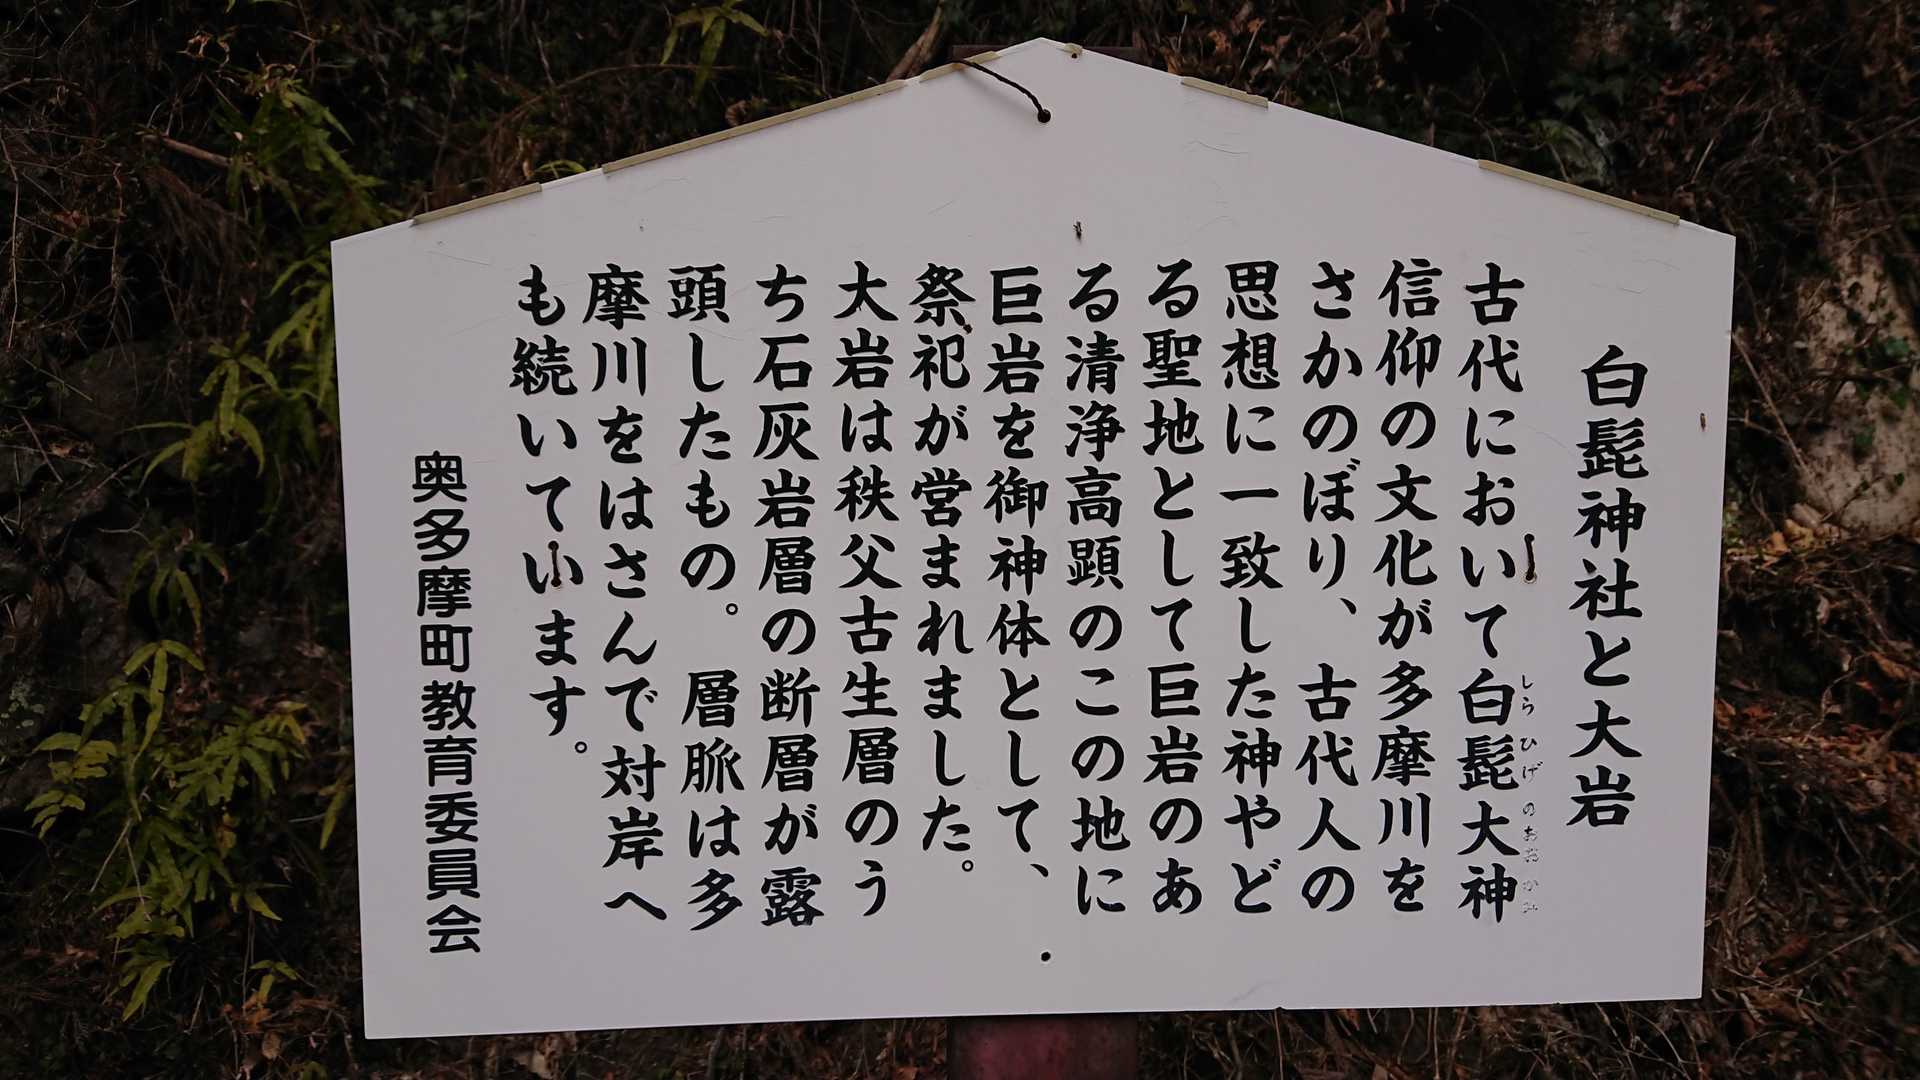 白髭神社と大岩
古代において白髭大神
しらひげのおおかみ
信仰の文化が多摩川を
さかのぼり、古代人の
思想に一致した神やど
る聖地として巨岩のあ
る清浄高顕のこの地に
巨岩を御神体として、
祭祀が営まれました。
大岩は秩父古生層のう
ち石灰岩層の断層が露
頭したもの。層脈は多
摩川をはさんで対岸へ
も続いています。
奥多摩町教育委員会